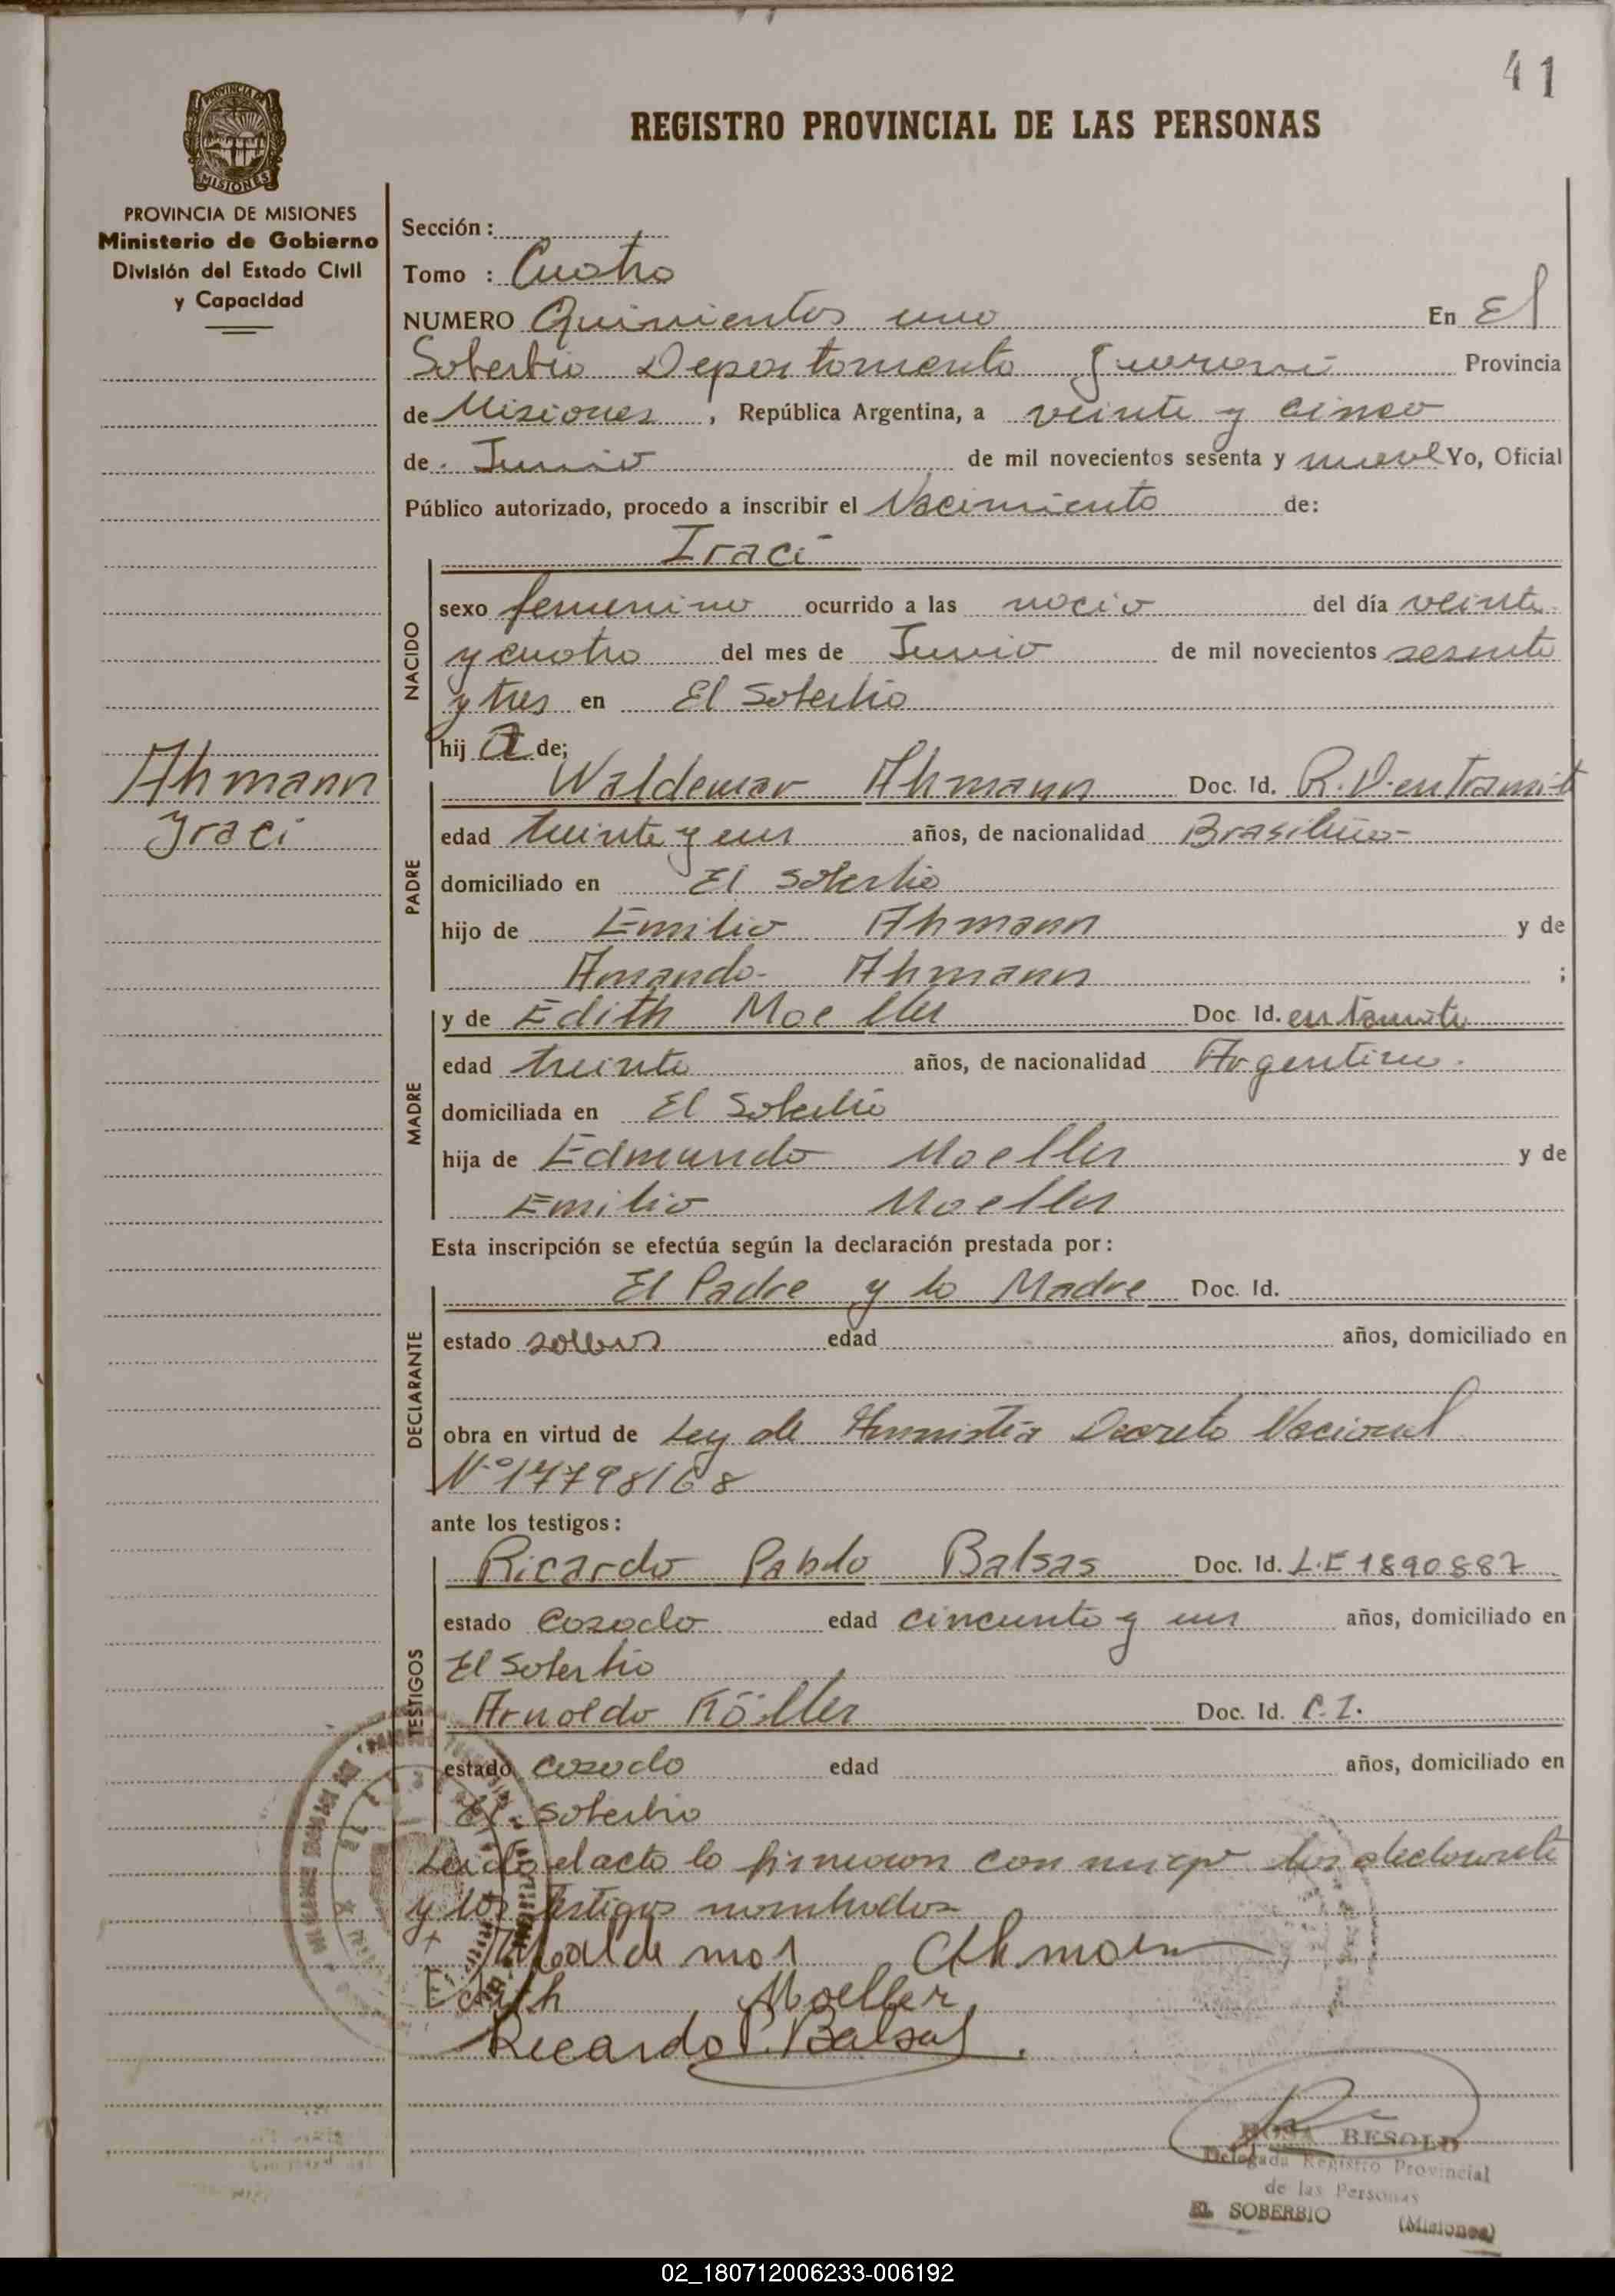 41
REGISTRO PROVINCIAL DE LAS PERSONAS
PROVINCIA DE MISIONES
Ministerio de Gobierno
División del Estado Civil
y Capacidad
Sección :
Tomo : Cuatro
NUMERO Quinientos uno En El
Soberbio Departamento Guarani Provincia
de Misiones , República Argentina, a veinte y cinco
de Junio de mil novecientos sesenta y nueve Yo, Oficial
Público autorizado, procedo a inscribir el Nacimiento de:
Iraci
NACIDO
sexo femenino ocurrido a las nacio del día veinte
y cuatro del mes de Junio de mil novecientos sesenta
y tres en El Soberbio
hij a de;
Ahmann
Iraci
PADRE
Waldemar Ahmann Doc. Id. R.D. en tramite
edad treinta y un años, de nacionalidad Brasileño
domiciliado en El Soberbio
hijo de Emilio Ahmann y de
Amanda Ahmann ;
MADRE
y de Edith Moeller Doc Id. en tramite
edad treinta años, de nacionalidad Argentina.
domiciliada en El Soberbio
hija de Edmundo Moeller y de
Emilia Moeller
Esta inscripción se efectúa según la declaración prestada por:
DECLARANTE
El Padre y la Madre Doc. Id.
estado edad años, domiciliado en
obra en virtud de Ley de Amnistia Decreto Nacional
Nº 17798/68
ante los testigos:
TESTIGOS
Ricardo Pablo Balsas Doc. Id. L.E 1890887
estado Casado edad cincuenta y un años, domiciliado en
El Soberbio
Arnoldo Köller Doc. Id. C.I.
estado casado edad años, domiciliado en
El Soberbio
Leido el acta la firmaron con migo los declarante
y los testigos nombrados
Waldemar Ahmann
Edith Moeller
Ricardo P. Balsas
ROSA BESOLD
Delegada Registro Provincial
de las Personas
EL SOBERBIO (Misiones)
02_180712006233-006192